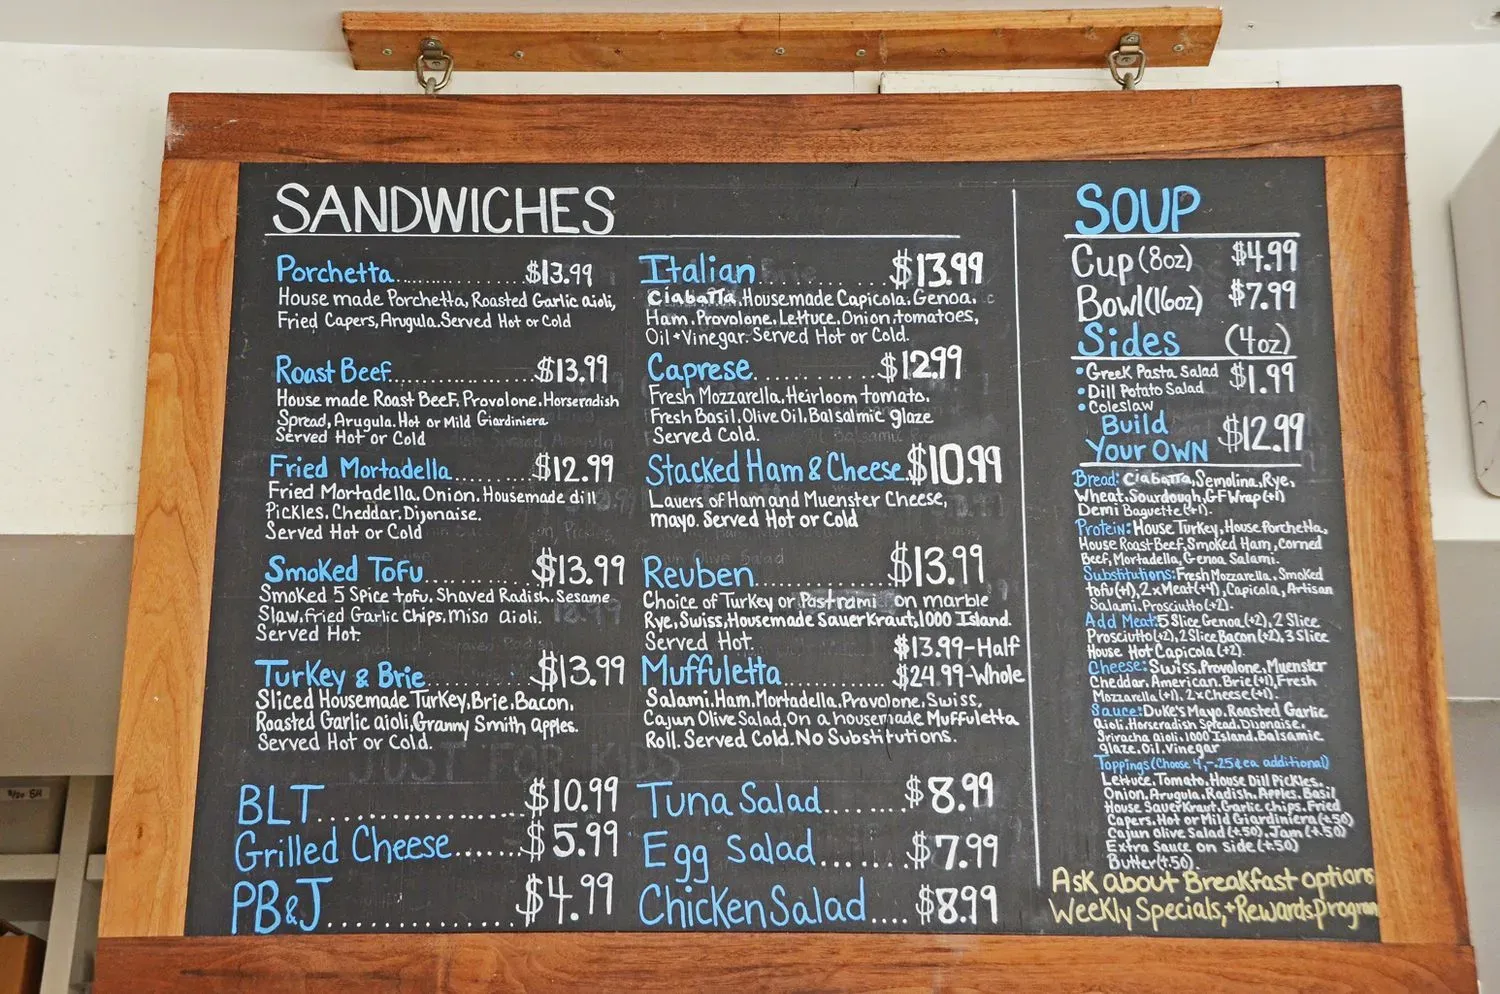 SANDWICHES
Porchetta..............$13.99
House made Porchetta, Roasted Garlic aioli,
Fried Capers, Arugula. Served Hot or Cold
Roast Beef................$13.99
House made Roast Beef, Provolone, Horseradish
Spread, Arugula. Hot or Mild Giardiniera
Served Hot or Cold
Fried Mortadella..........$12.99
Fried Mortadella, Onion, Housemade dill
Pickles, Cheddar, Dijonaise.
Served Hot or Cold
Smoked Tofu............$13.99
Smoked 5 Spice tofu, Shaved Radish, Sesame
Slaw, fried Garlic Chips, Miso Aioli.
Served Hot.
Turkey & Brie............$13.99
Sliced Housemade Turkey, Brie, Bacon,
Roasted Garlic aioli, Granny Smith apples.
Served Hot or Cold.
BLT....................$10.99
Grilled Cheese.......$5.99
PB&J..................$4.99
Italian..............$13.99
Ciabatta, Housemade Capicola, Genoa,
Ham, Provolone, Lettuce, Onion, tomatoes,
Oil + Vinegar. Served Hot or Cold.
Caprese..............$12.99
Fresh Mozzarella, Heirloom tomato,
Fresh Basil, Olive Oil, Balsalmic glaze
Served Cold.
Stacked Ham & Cheese..$10.99
Layers of Ham and Muenster Cheese,
mayo. Served Hot or Cold
Reuben..............$13.99
Choice of Turkey or Pastrami on marble
Rye, Swiss, Housemade SauerKraut, 1000 Island.
Served Hot.
$13.99-Half
Muffuletta............$24.99-Whole
Salami, Ham, Mortadella, Provolone, Swiss,
Cajun Olive Salad, On a housemade Muffuletta
Roll. Served Cold. No Substitutions.
Tuna Salad.......$8.99
Egg Salad.......$7.99
Chicken Salad....$8.99
SOUP
Cup (8oz) $4.99
Bowl (16oz) $7.99
Sides (4oz)
• Greek Pasta Salad $1.99
• Dill Potato Salad
• Coleslaw
Build
Your OWN $12.99
Bread: Ciabatta, Semolina, Rye,
Wheat, Sourdough, GF Wrap (+1)
Demi Baguette (+1).
Protein: House Turkey, House Porchetta,
House Roast Beef, Smoked Ham, Corned
Beef, Mortadella, Genoa Salami.
Substitutions: Fresh Mozzarella, Smoked
tofu (+1), 2xMeat (+4), Capicola, Artisan
Salami, Prosciutto (+2).
Add Meat: 5 Slice Genoa (+2), 2 Slice
Prosciutto (+2), 2 Slice Bacon (+2), 3 Slice
House Hot Capicola (+2)
Cheese: Swiss, Provolone, Muenster
Cheddar, American, Brie (+1), Fresh
Mozzarella (+1), 2xCheese (+1).
Sauce: Duke's Mayo, Roasted Garlic
aioli, Horseradish Spread, Dijonaise,
Sriracha aioli, 1000 Island, Balsamic
glaze, Oil, Vinegar
Toppings (Choose 4, -.25¢ ea additional)
Lettuce, Tomato, House Dill Pickles,
Onion, Arugula, Radish, Apples, Basil
House SauerKraut, Garlic chips, Fried
Capers, Hot or Mild Giardiniera (+.50)
Cajun Olive Salad (+.50), Jam (+.50)
Extra Sauce on side (+.50)
Butter (+.50).
Ask about Breakfast options
Weekly Specials, + Rewards program